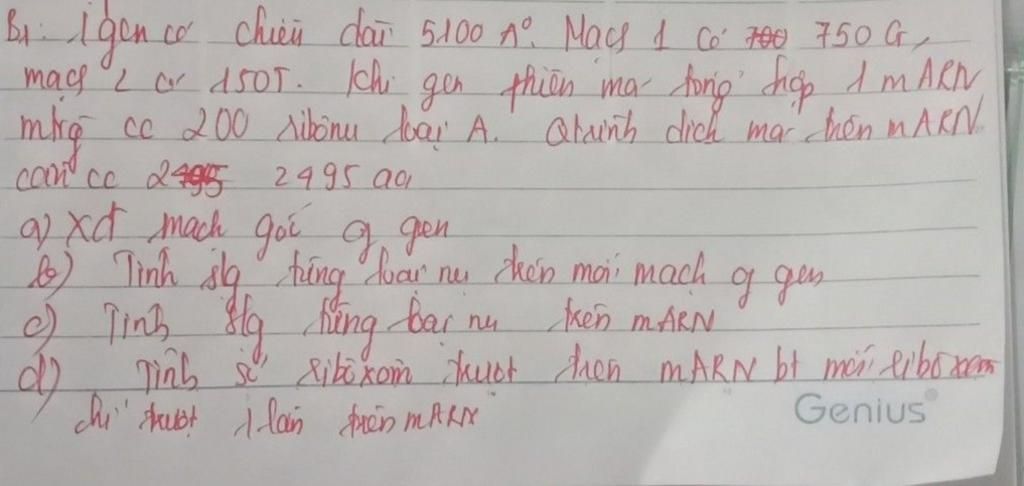 B1. 1 gen có chiều dài 5100 A°. Mạch 1 có 750 G,
mạch 2 có 150T. Khi gen phiên mã tổng hợp 1 mARN
mtrg cc 200 ribônu loại A. Qtrình dịch mã trên mARN
cần cc 2495 aa
a) xđ mạch gốc g gen
b) Tính slg từng loại nu trên mỗi mạch g gen
c) Tính slg từng loại nu trên mARN
d) Tính số ribôxôm trượt trên mARN bt mỗi ribôxom
chỉ trượt 1 lần trên mARN
Genius